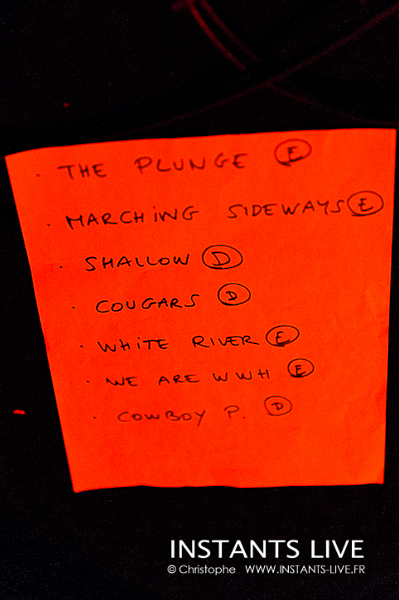 · THE PLUNGE E
· MARCHING SIDEWAYS E
· SHALLOW D
· COUGARS D
· WHITE RIVER E
· WE ARE WWH E
· COWBOY P. D
INSTANTS LIVE
© Christophe WWW.INSTANTS-LIVE.FR